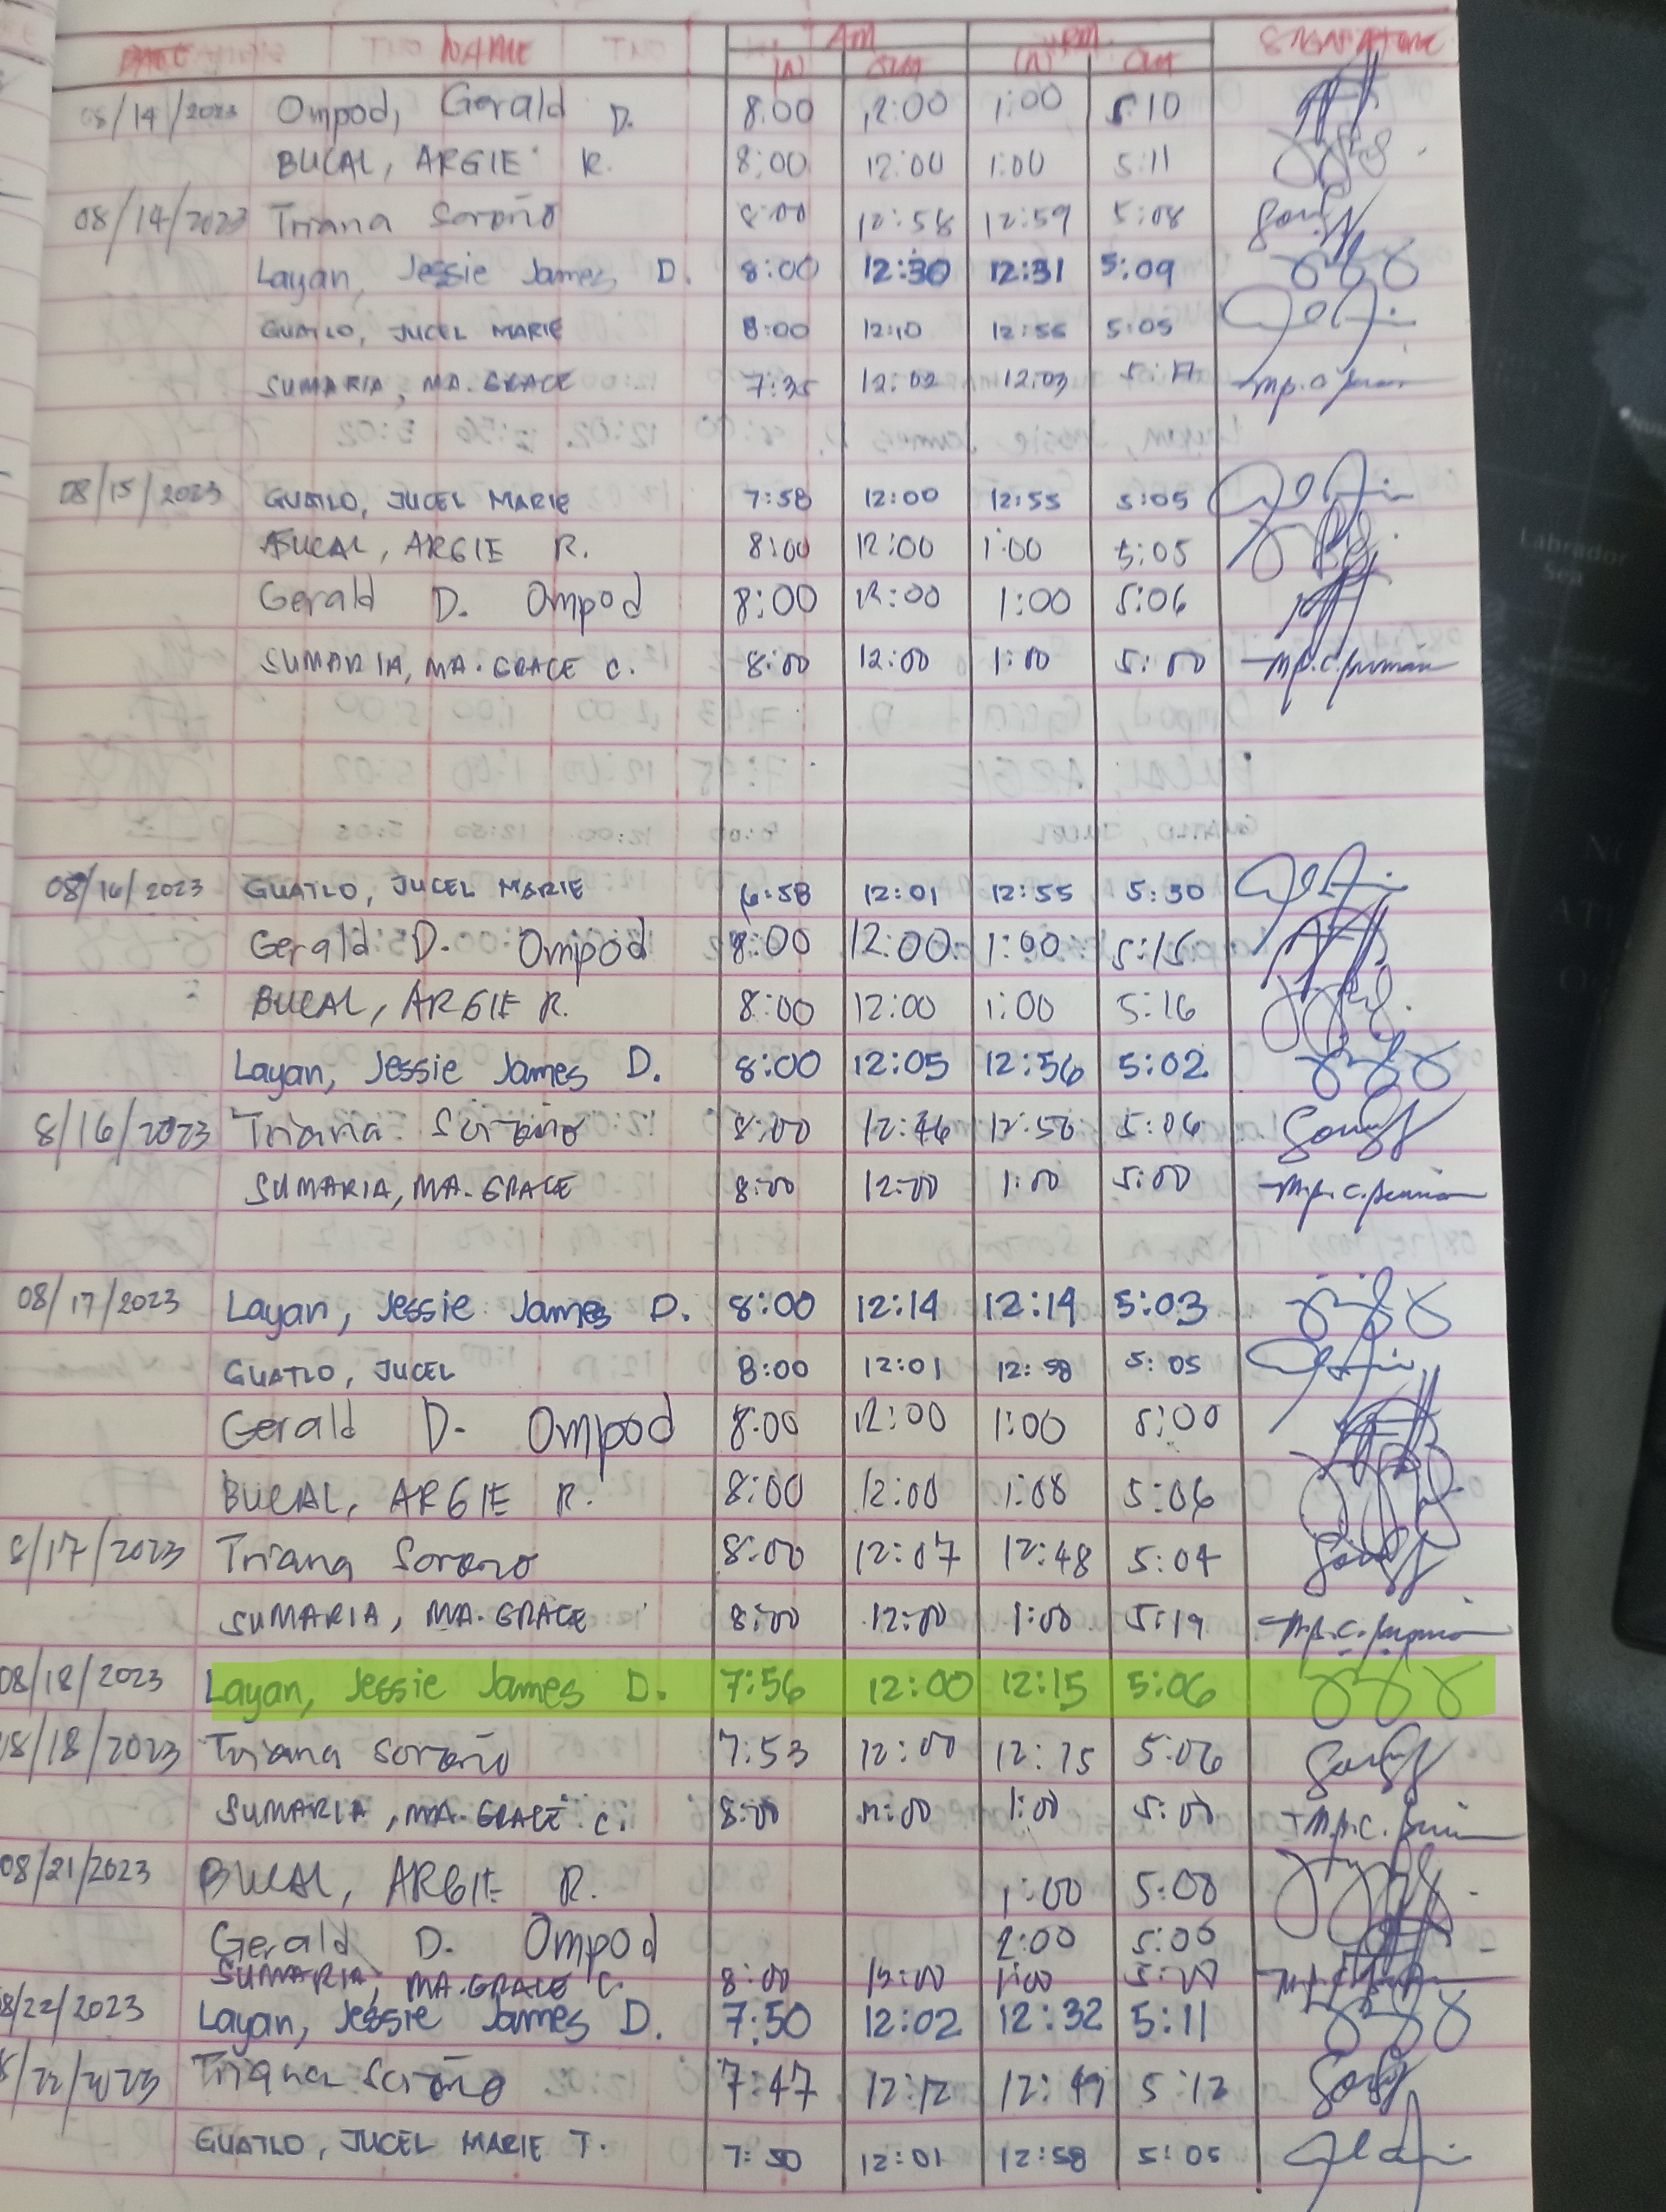 AM PM
DATE NAME IN OUT IN OUT SIGNATURE
08/14/2023 Ompod, Gerald D. 8:00 12:00 1:00 5:10
BUCAL, ARGIE R. 8:00 12:00 1:00 5:11
08/14/2023 Triana Soroño 8:00 12:58 12:59 5:08
Layan, Jessie James D. 8:00 12:30 12:31 5:09
GUATLO, JUCEL MARIE 8:00 12:10 12:55 5:05
SUMARIA, MA. GRACE 7:35 12:02 12:03 5:17
08/15/2023 GUATLO, JUCEL MARIE 7:58 12:00 12:55 5:05
BUCAL, ARGIE R. 8:00 12:00 1:00 5:05
Gerald D. Ompod 8:00 12:00 1:00 5:06
SUMARIA, MA. GRACE C. 8:00 12:00 1:00 5:00
08/16/2023 GUATLO, JUCEL MARIE 6:58 12:01 12:55 5:30
Gerald D. Ompod 8:00 12:00 1:00 5:15
BUCAL, ARGIE R. 8:00 12:00 1:00 5:16
Layan, Jessie James D. 8:00 12:05 12:56 5:02
8/16/2023 Triana Soroño 8:00 12:46 12:56 5:06
SUMARIA, MA. GRACE 8:00 12:00 1:00 5:00
08/17/2023 Layan, Jessie James D. 8:00 12:14 12:14 5:03
GUATLO, JUCEL 8:00 12:01 12:58 5:05
Gerald D. Ompod 8:00 12:00 1:00 5:00
BUCAL, ARGIE R. 8:00 12:00 1:08 5:06
8/17/2023 Triana Soroño 8:00 12:07 12:48 5:04
SUMARIA, MA. GRACE 8:00 12:00 1:00 5:19
08/18/2023 Layan, Jessie James D. 7:56 12:00 12:15 5:06
8/18/2023 Triana Soroño 7:53 12:00 12:15 5:06
SUMARIA, MA. GRACE C. 8:00 12:00 1:00 5:00
08/21/2023 BUCAL, ARGIE R. 1:00 5:00
Gerald D. Ompod 2:00 5:00
SUMARIA, MA. GRACE C. 8:00 12:00 1:00 5:00
8/22/2023 Layan, Jessie James D. 7:50 12:02 12:32 5:11
8/22/2023 Triana Soroño 7:47 12:12 12:49 5:12
GUATLO, JUCEL MARIE T. 7:50 12:01 12:58 5:05
Labrador
Sea